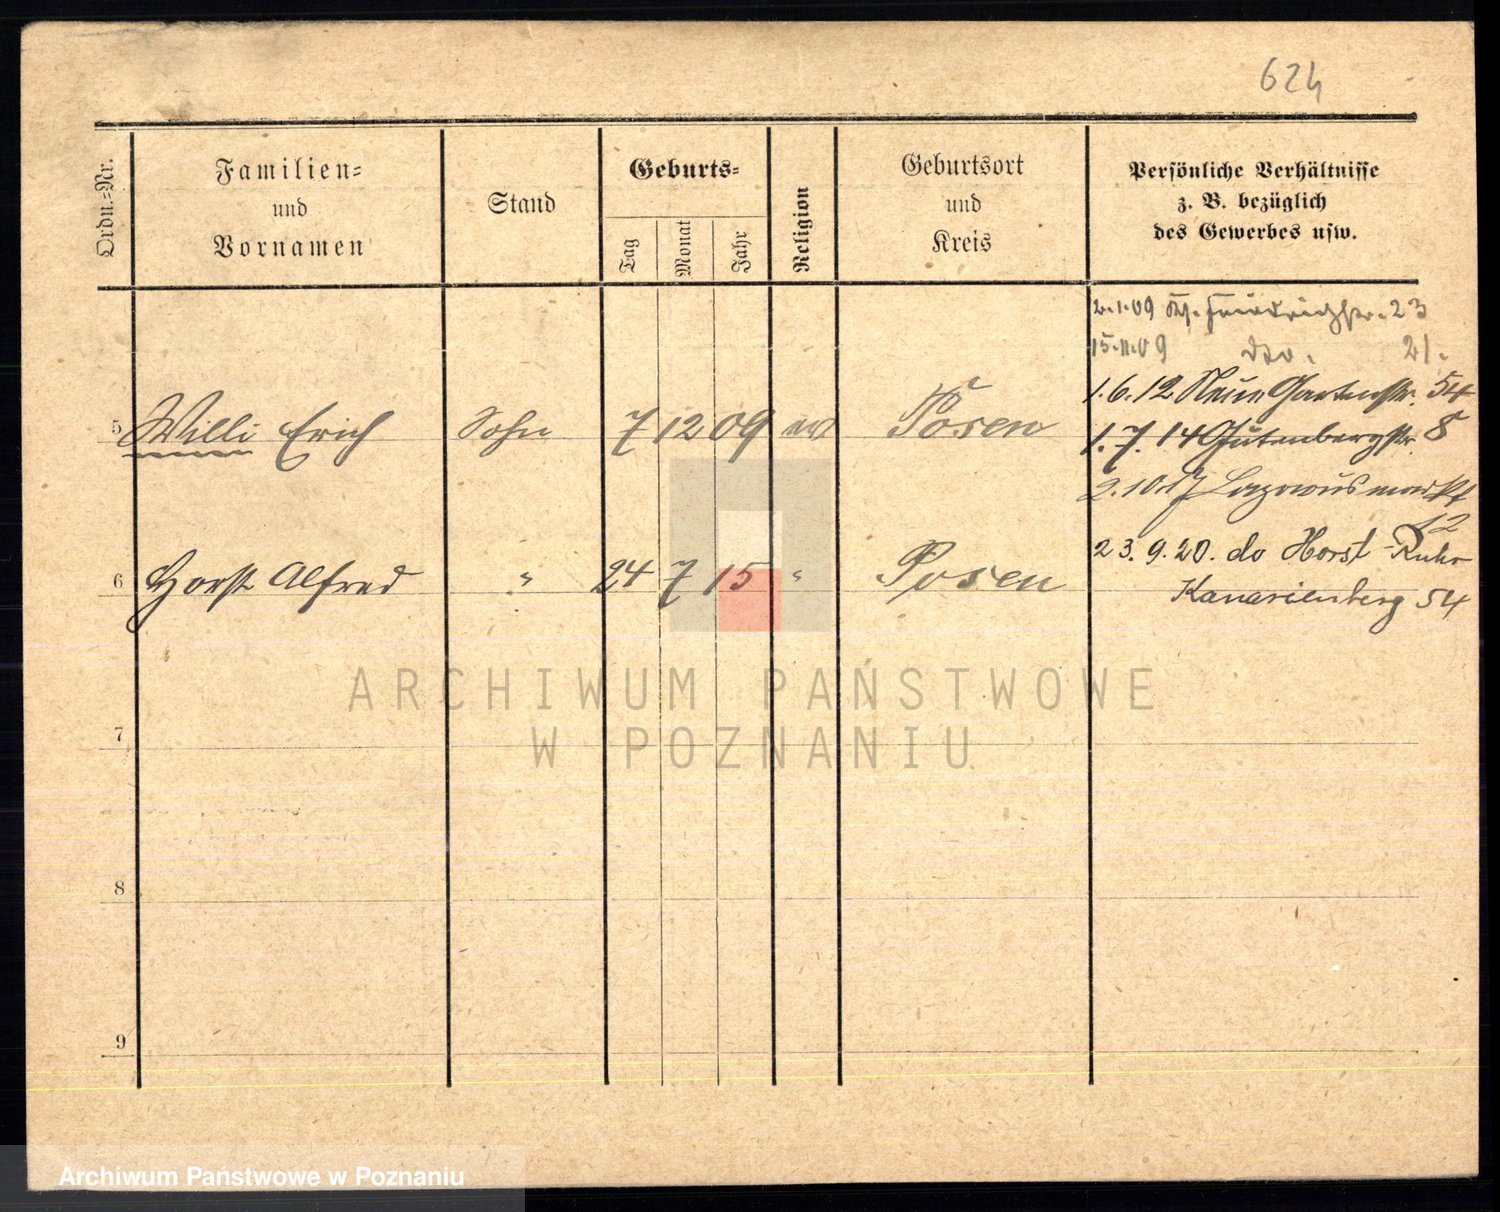 624
Ordn.-Nr.
Familien-
und
Vornamen
Stand
Geburts-
Tag
Monat
Jahr
Religion
Geburtsort
und
Kreis
Persönliche Verhältnisse
z. B. bezüglich
des Gewerbes usw.
2.1.09 Friedrichstr. 23
15.11.09 dto. 21.
1.6.12 Neue Gartenstr. 54
5 Willi Erich Sohn 7 12 09 ev Posen
1.7.14 Gutenbergstr. 8
2.10.17 Lazarusmarkt
12
6 Horst Alfred " 24 7 15 " Posen
23.9.20. do Horst-Ruhr
Kanarienberg 54
7
8
9
ARCHIWUM PAŃSTWOWE
W POZNANIU
Archiwum Państwowe w Poznaniu